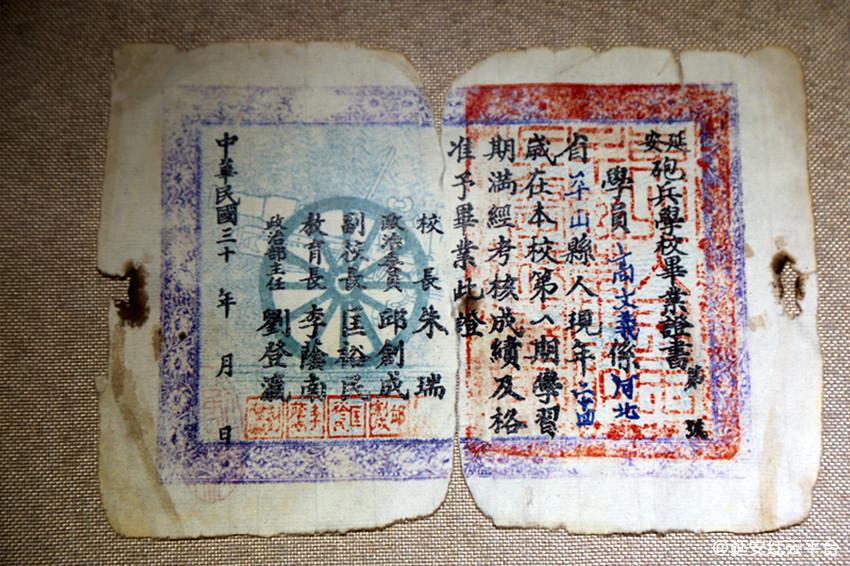 延安
砲兵學校畢業證書
第 號
學員 高文義 係 河北
省 平山 縣人現年 二十四
歲在本校第 八 期學習
期滿經考核成績及格
准予畢業此證
校長 朱瑞
政治委員 邱創成
副校長 匡裕民
教育長 李蔭南
政治部主任 劉登瀛
中華民國三十 年 月 日
@延安红云平台